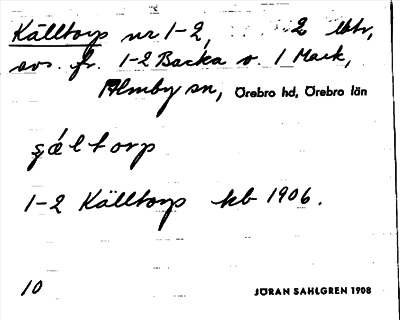 Källtorp nr 1-2, 2 lbtr,
avs. fr. 1-2 Backa o. 1 Mark,
Almby sn, Örebro hd, Örebro län
çæ̀ltorp
1-2 Källtorp kb 1906.
10 JÖRAN SAHLGREN 1908